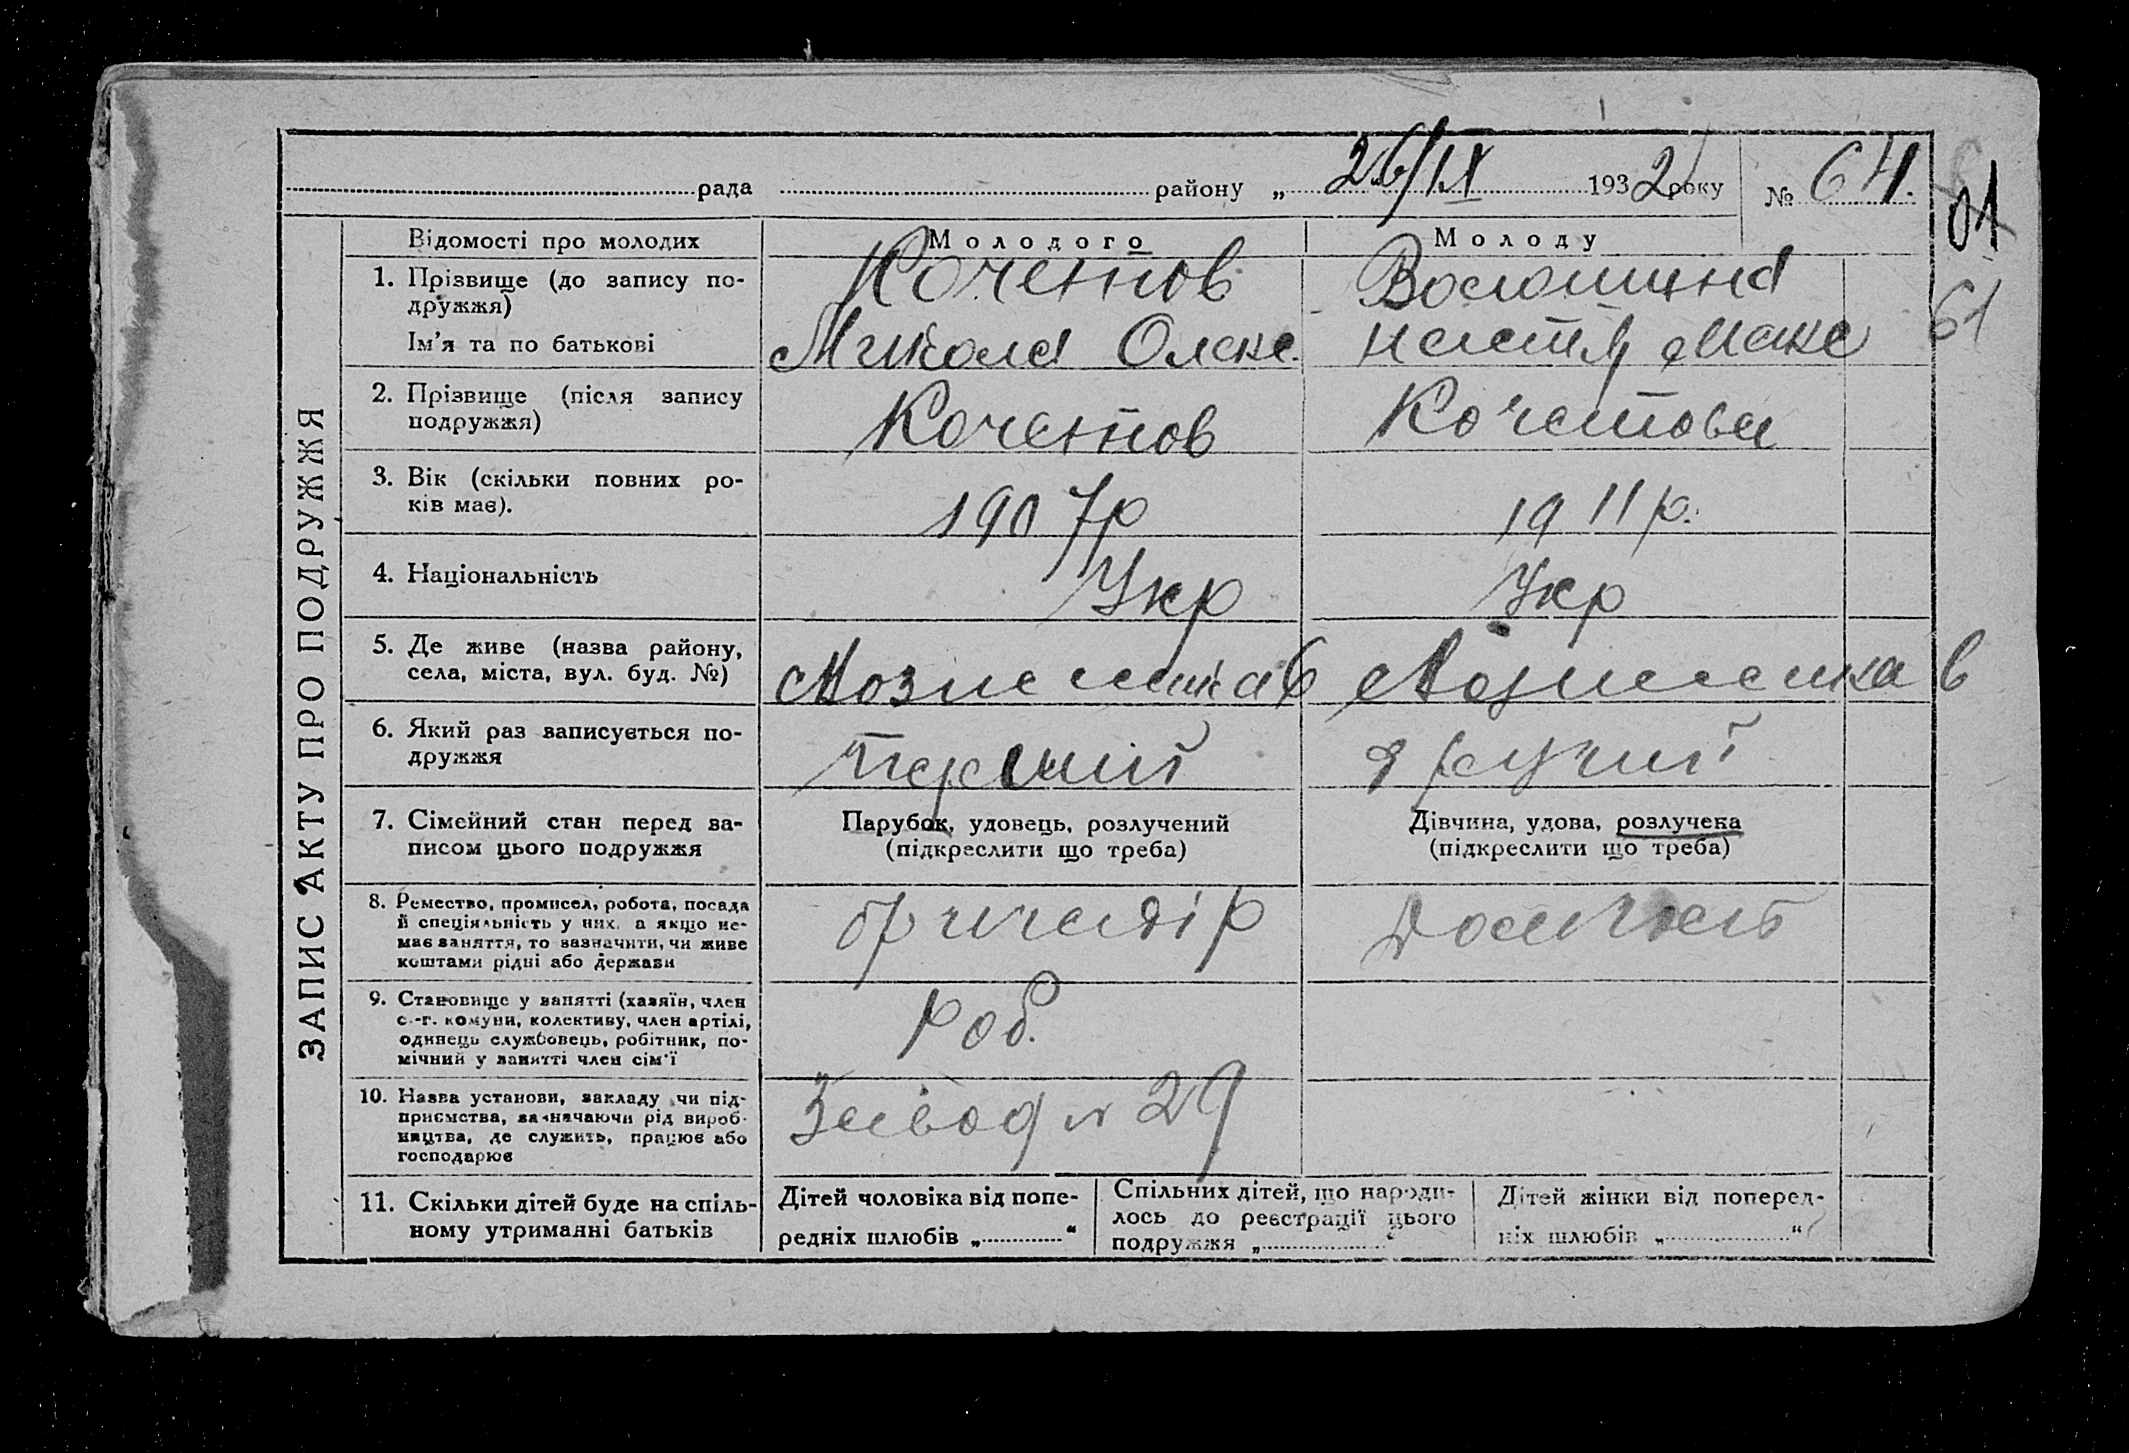 рада району „ 26/IX 1932 року № 64.
61
ЗАПИС АКТУ ПРО ПОДРУЖЖЯ
Відомості про молодих Молодого Молоду
1. Прізвище (до запису по-
дружжя)
Кочетов Волошина
Ім'я та по батькові Микола Олекс. Настя Макс
2. Прізвище (після запису
подружжя)
Кочетов Кочетова
3. Вік (скільки повних ро-
ків має).
1907р 1911р.
4. Національність Укр Укр
5. Де живе (назва району,
села, міста, вул. буд. №)
6. Який раз записується по-
дружжя
перший другий
7. Сімейний стан перед за-
писом цього подружжя
Парубок, удовець, розлучений
(підкреслити що треба)
Дівчина, удова, розлучена
(підкреслити що треба)
8. Ремество, промисел, робота, посада
й спеціяльність у них, а якщо не-
має заняття, то зазначити, чи живе
коштами рідні або держави
9. Становище у занятті (хазяїн, член
с.-г. комуни, колективу, член артілі,
одинець службовець, робітник, по-
мічний у занятті член сім'ї
роб.
10. Назва установи, закладу чи під-
приємства, зазначаючи рід вироб-
ництва, де служить, працює або
господарює
Завод № 29
11. Скільки дітей буде на спіль-
ному утриманні батьків
Дітей чоловіка від попе-
редніх шлюбів „ “
Спільних дітей, що народи-
лось до реєстрації цього
подружжя „ “
Дітей жінки від поперед-
ніх шлюбів „ “